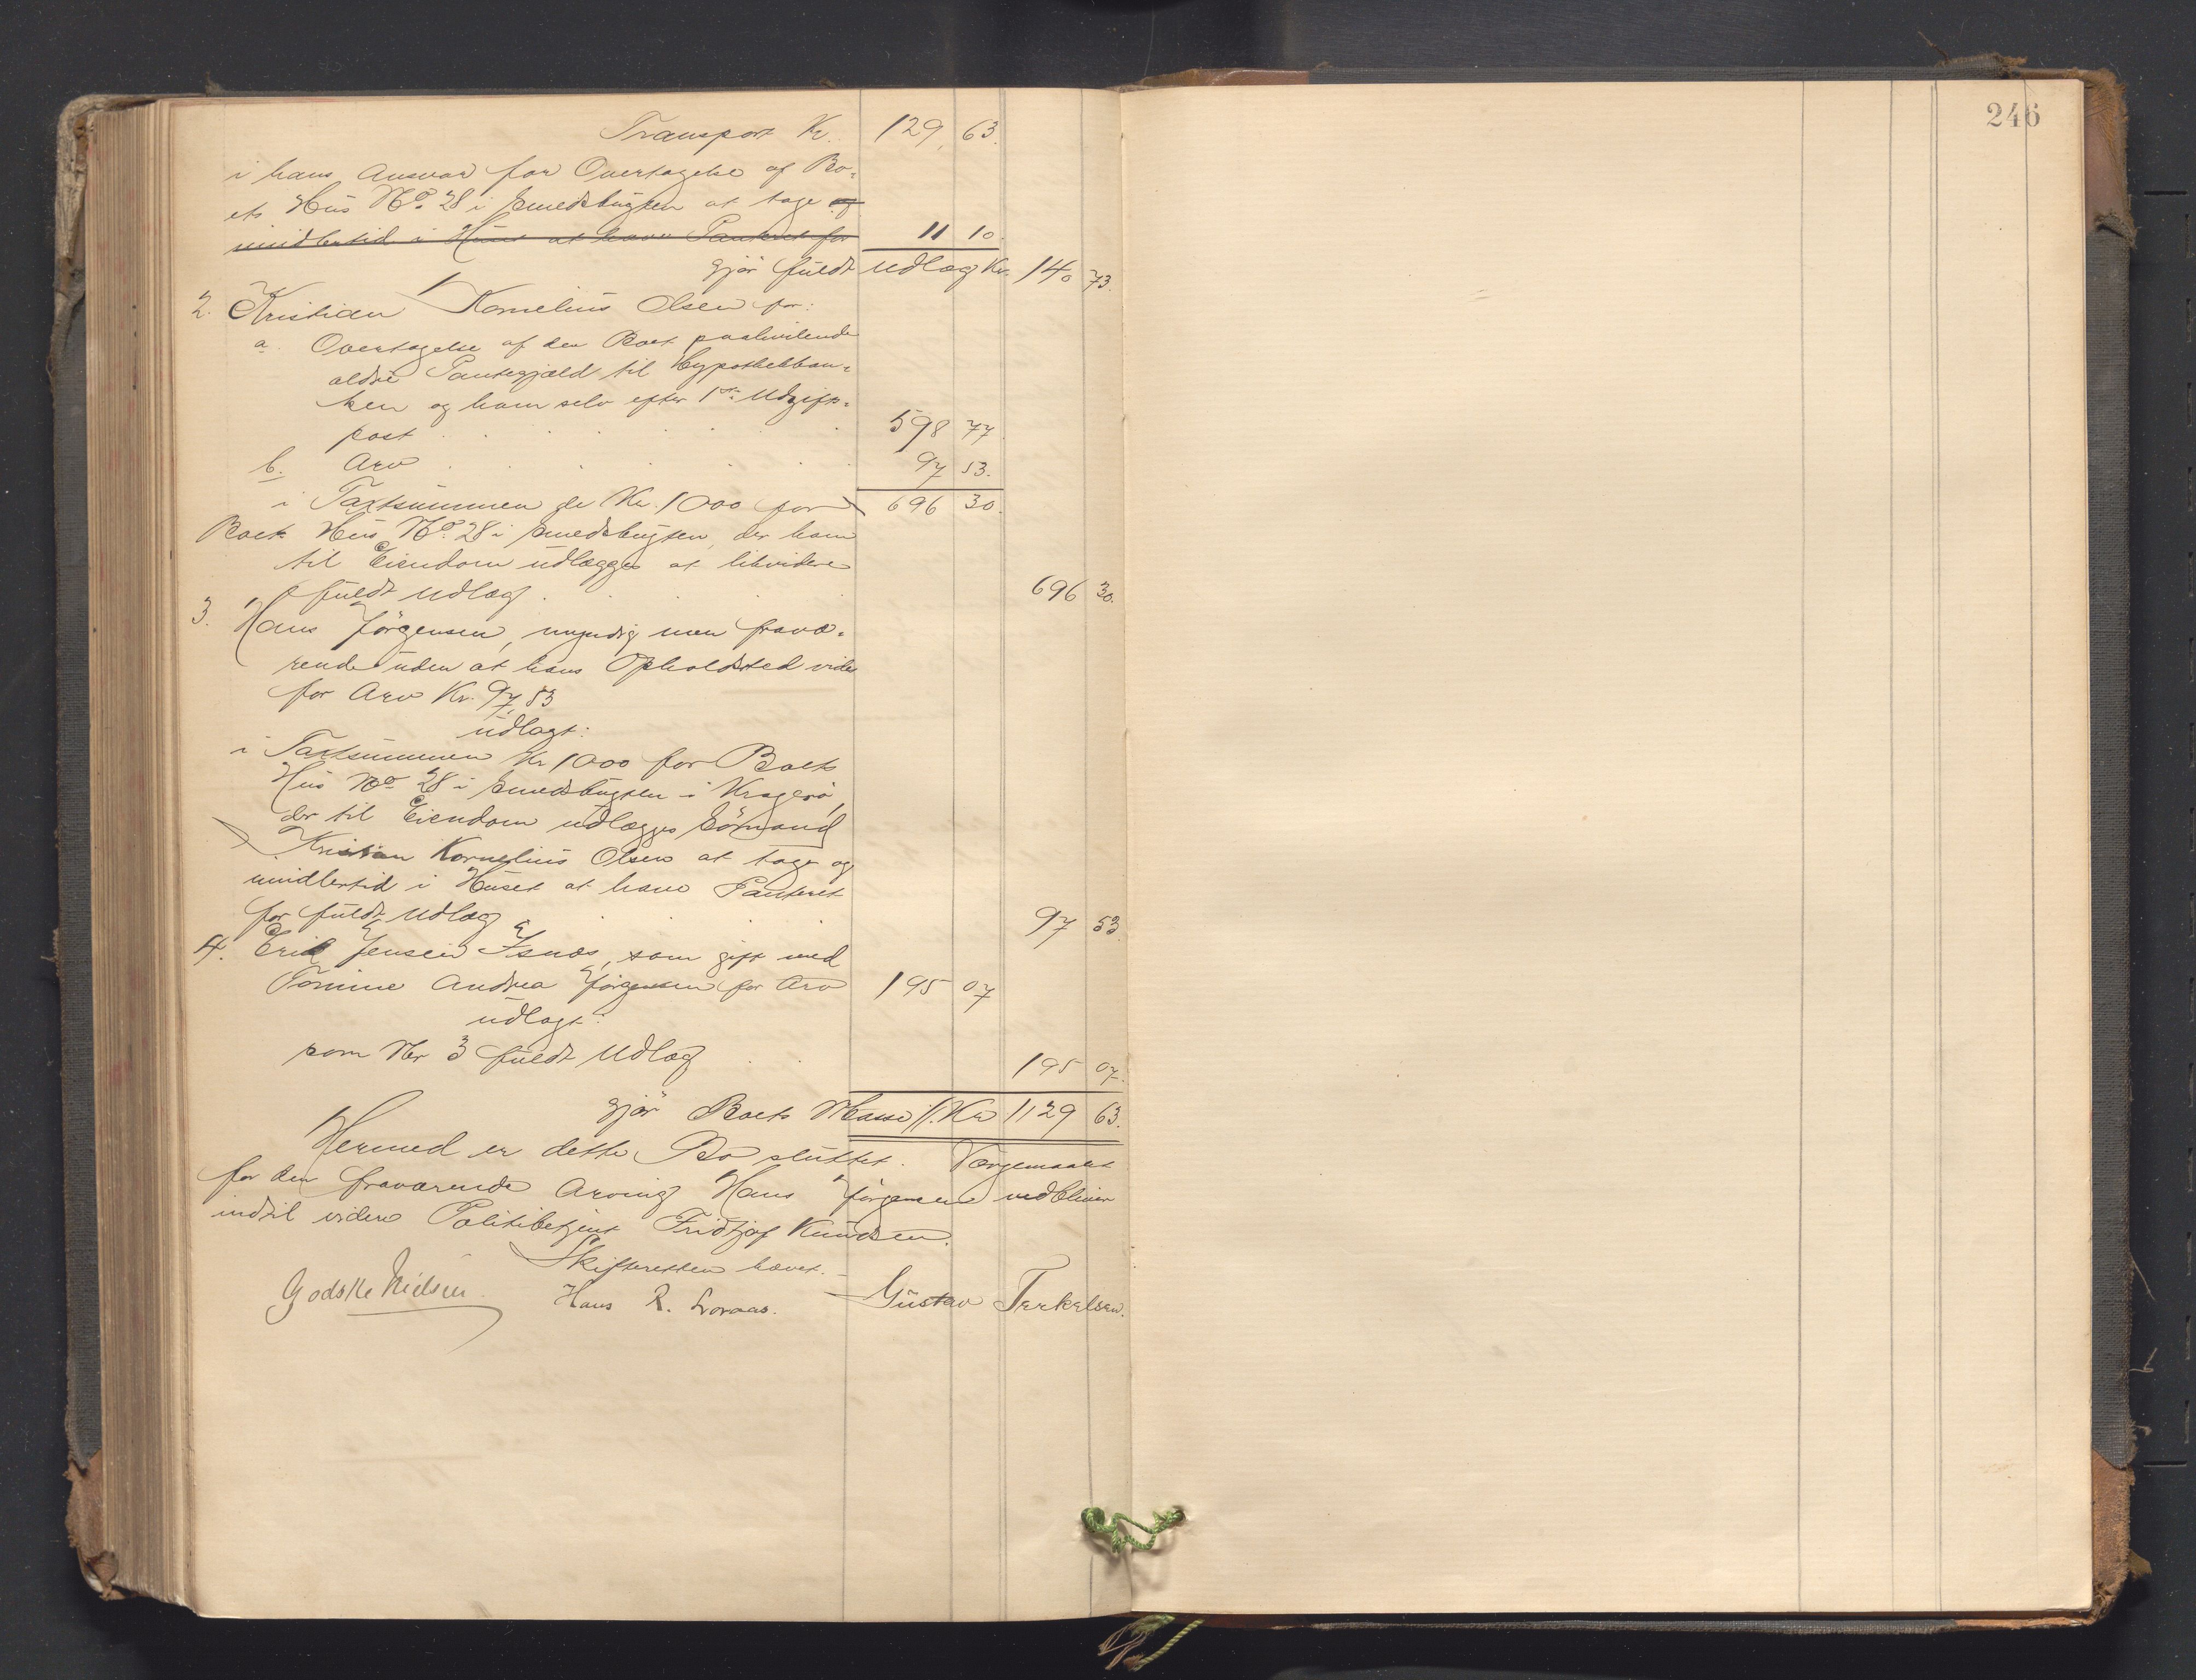 Transport Kr. 129, 63.
i hans Ansvar for Overtagelse af Bo-
ets Hüs No 28 i Smedsbügten at tage og
imidlertid i Hüset at have Panteret for 11 10.
gjör füldt Udlæg Kr. 140 73.
2. Kristian Kornelius Olsen for:
a. Overtagelse af den Boet paahvilende
ældre Pantegjæld til Hypothekban-
ken og ham selv efter 1ste Udgifts-
post . . . . . . . 598 77
b. Arv . . . . . . . 97 53.
i Taxtsümmen de Kr. 1000 for 696 30.
Boets Hüs No 28 i Smedsbügten, der ham
til Eiendom üdlægges at likvidere
füldt Udlæg . . . . . 696 30.
3. Hans Jörgensen, myndig men fravæ-
rende üden at hans Opholdsted vides
for Arv Kr. 97,53
üdlagt:
i Taxtsümmen Kr 1000 for Boets
Hüs No 28 i Smedsbügten i Kragerö,
der til Eiendom üdlægges Sömand
Kristian Kornelius Olsen at tage og
imidlertid i Hüset at have Panteret
for füldt Udlæg . . . . 97 53.
4. Erik Jensen Isnæs, som gift med
Tomine Andrea Jörgensen for Arv 195 07
üdlagt:
som Nr 3 füldt Udlæg . . 195 07.
gjör Boets Masse //. Kr 1129 63.
Hermed er dette Bo slüttet. Værgemaalet
for den fraværende Arving Hans Jörgensen vedbliver
indtil videre Politibetjent Fridtjof Knüdsen.
Skifteretten hævet. –
Godske Nielsen. Hans R. Lovaas. Güstav Terkelsen.
246